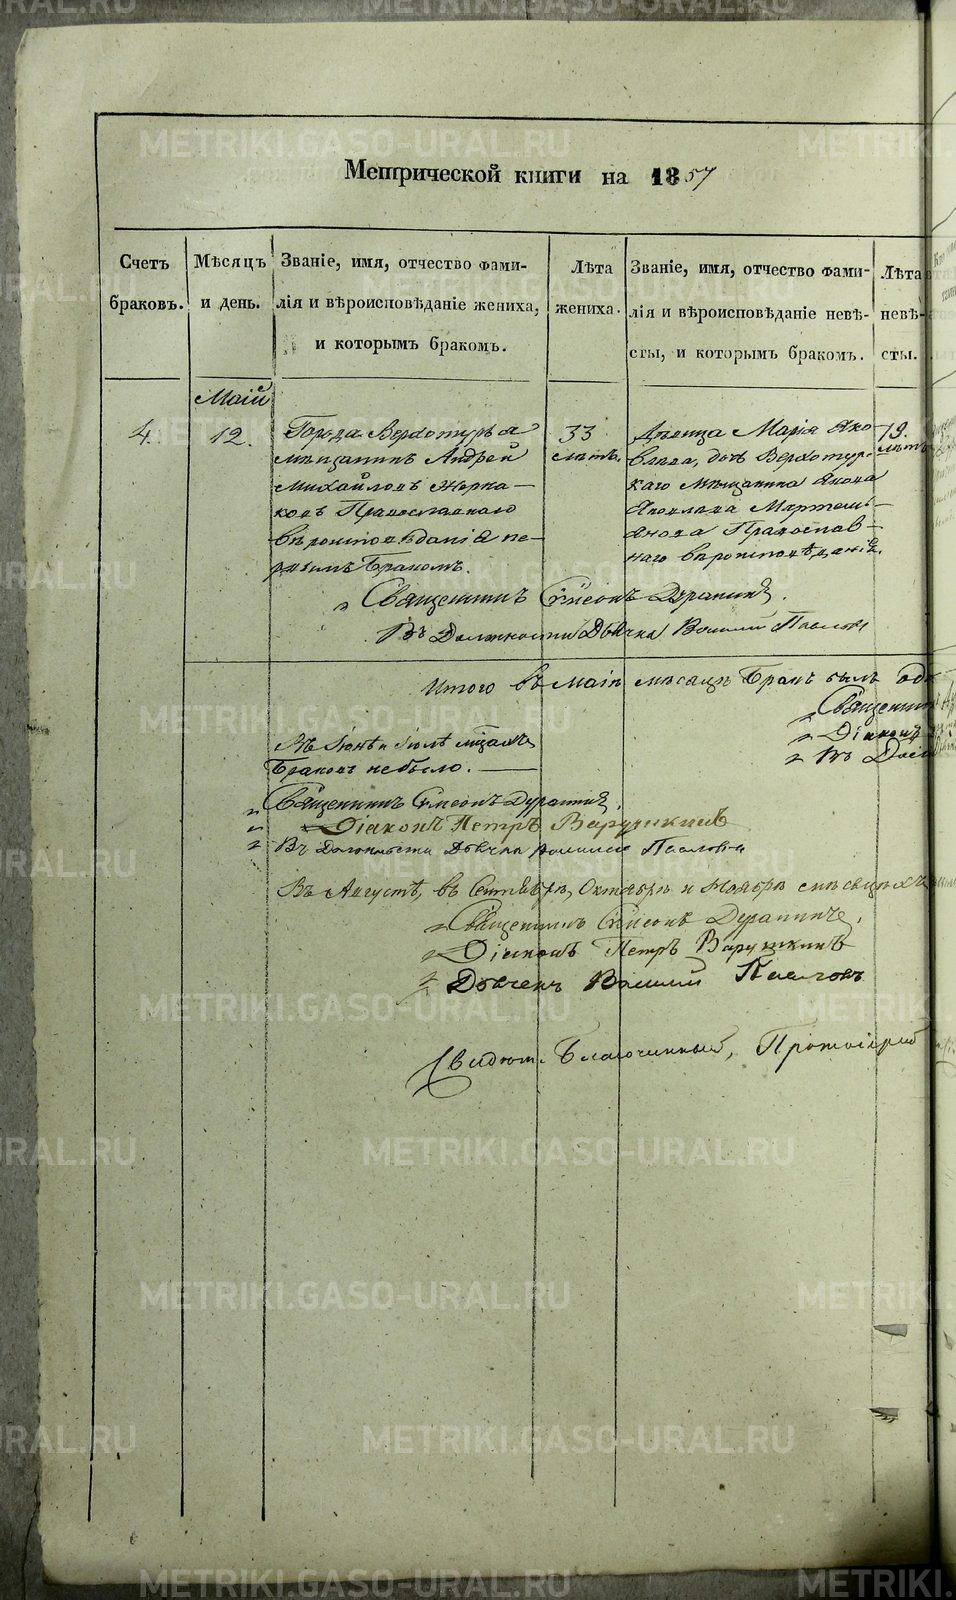 Метрической книги на 1857
Счетъ браковъ.
Мѣсяцъ и день.
Званіе, имя, отчество фами-
лія и вѣроисповѣданіе жениха,
и которымъ бракомъ.
Лѣта
жениха.
Званіе, имя, отчество фами-
лія и вѣроисповѣданіе невѣ-
сты, и которымъ бракомъ.
Лѣта
невѣ-
сты.
Маій
4.
12.
Города Верхотурья
мѣщанинъ Андрей
Михайловъ
Православнаго
вѣроисповѣданія пе-
рвымъ бракомъ.
33
лѣтъ.
Дѣвица Марія Яко-
влева, дочь Верхотур-
скаго мѣщанина Якова
Яковлева Мартемь-
янова Православ-
наго вѣроисповѣданія.
19.
лѣтъ
Священникъ Симеонъ
Въ Должности Дьячка Василій Павловъ
Итого въ Маіѣ мѣсяцѣ Бракъ былъ
Священник
Діаконъ
Въ
Въ Іюнѣ и Іюлѣ мѣсяцахъ
браковъ не было.
Священникъ Симеонъ
Діаконъ Петръ Варушкинъ
Въ Должности Дьячка Василій Павловъ
Въ Августѣ, въ Сентябрѣ, Октябрѣ и Ноябрѣ мѣсяцахъ
Священникъ Симеонъ
Діаконъ Петръ Варушкинъ
Дьячекъ Василій Павловъ
Свидѣт. Благочинный, Протоіерей
METRIKI.GASO-URAL.RU